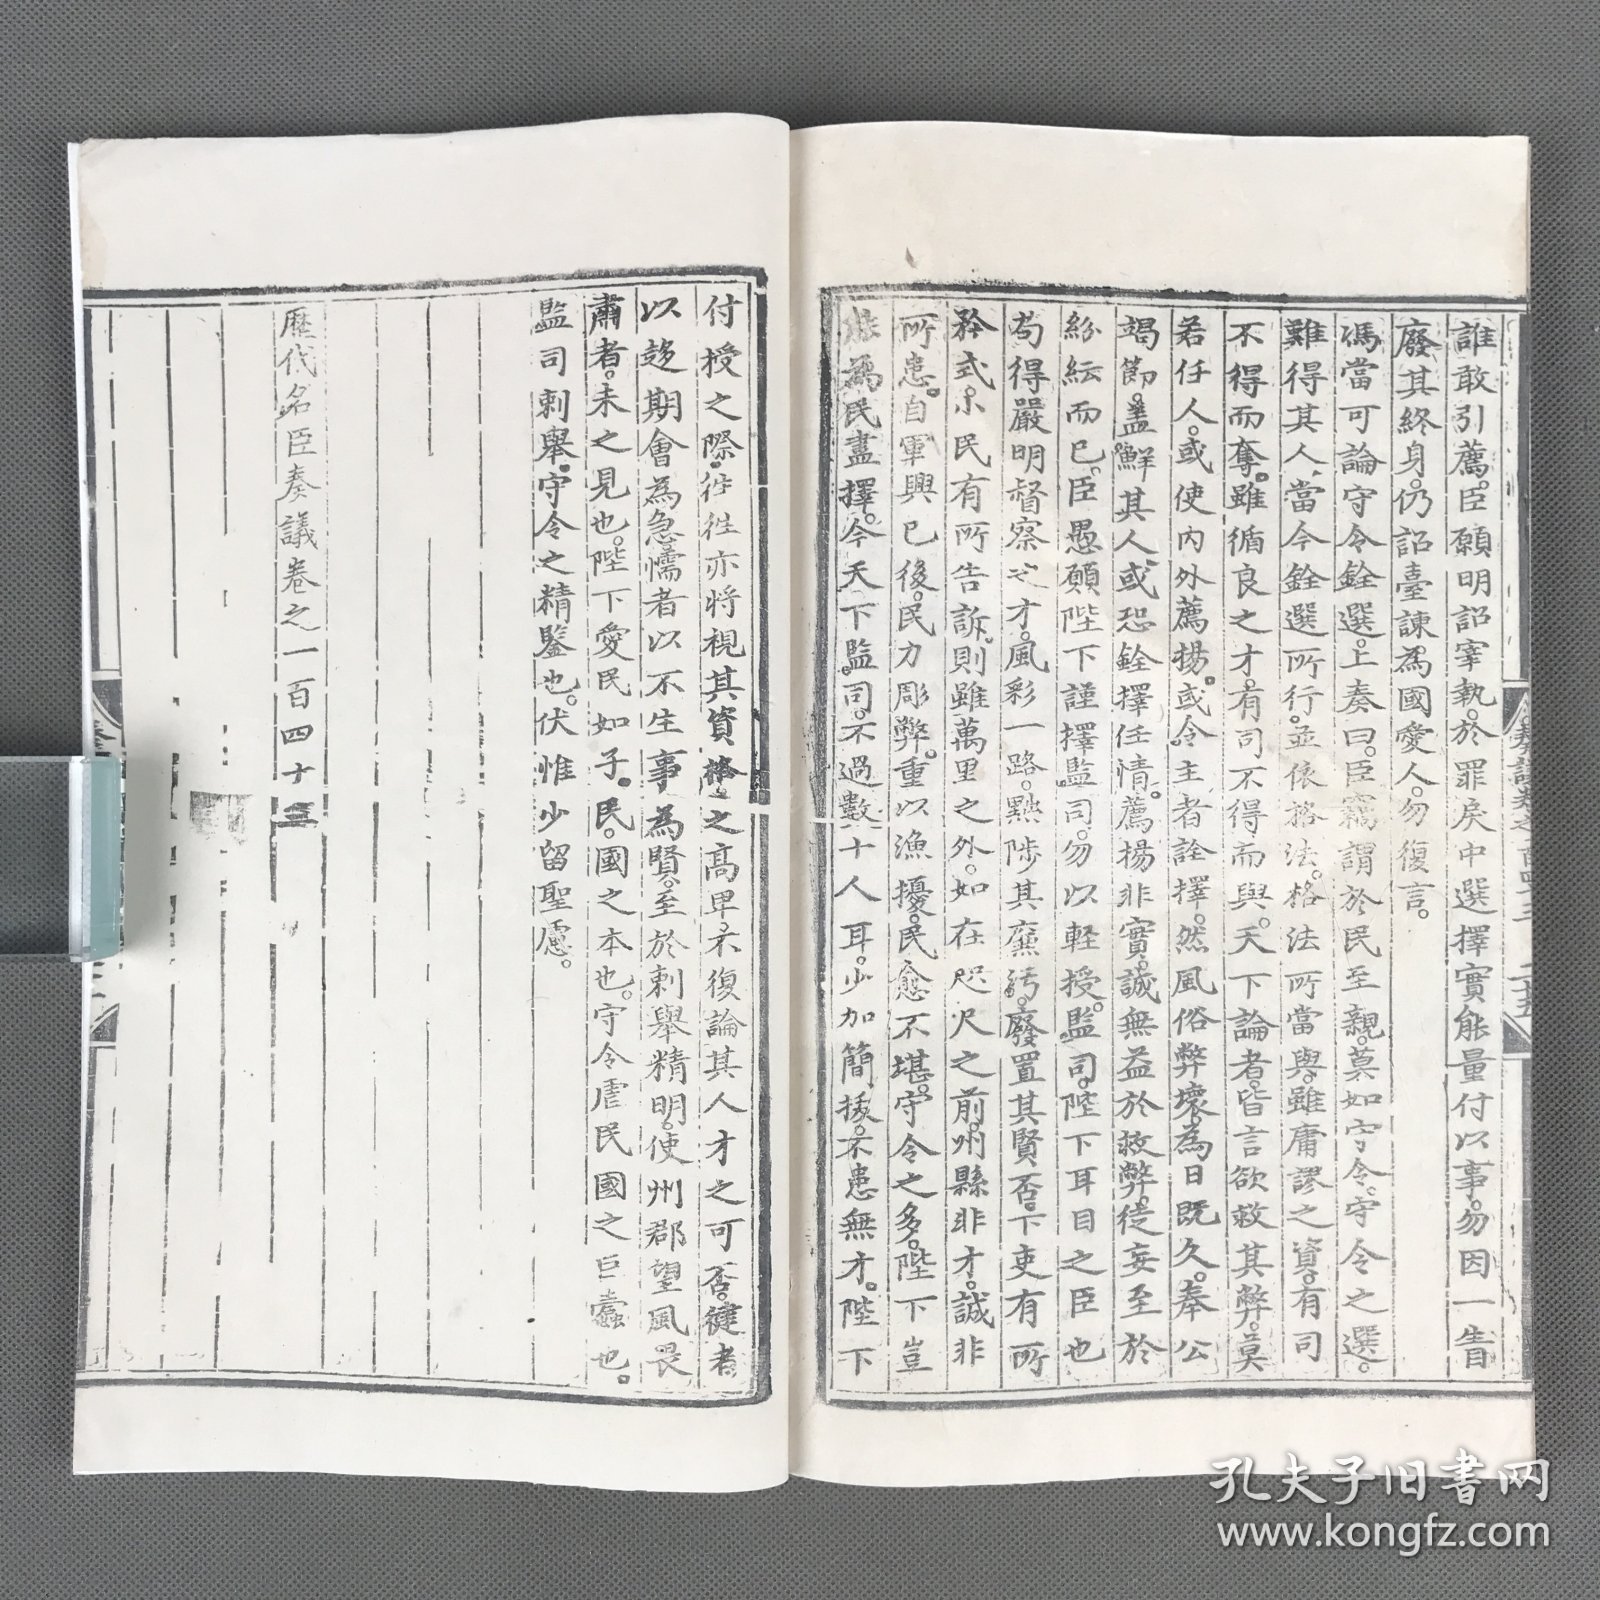 誰敢引薦。臣願明詔宰執。於罪戾中選擇實能量付以事。勿因一眚
廢其終身。仍詔臺諫為國愛人。勿復言。
馮當可論守令銓選。上奏曰。臣竊謂於民至親。莫如守令。守令之選。
難得其人。當今銓選所行。並依格法。格法所當與。雖庸謬之資。有司
不得而奪。雖循良之才。有司不得而與。天下論者。皆言欲救其弊。莫
若任人。或使內外薦揚。或令主者詮擇。然風俗弊壞。為日既久。奉公
竭節。蓋鮮其人。或恐銓擇任情。薦揚非實。誠無益於救弊。徒妄至於
紛紜而已。臣愚願陛下謹擇監司。勿以輕授。監司。陛下耳目之臣也
苟得嚴明督察之才。風彩一路。黜陟其廉污。廢置其賢否。下吏有所
矜式。小民有所告訴。則雖萬里之外。如在咫尺之前。州縣非才。誠非
所患。自軍興已後。民力彫弊。重以漁擾。民愈不堪。守令之多。陛下豈
能為民盡擇。今天下監司。不過數十人耳。少加簡拔。不患無才。陛下
付授之際。往往亦將視其資格之高卑。不復論其人才之可否。健者
以趍期會為急。懦者以不生事為賢。至於刺舉精明。使州郡望風畏
肅者。未之見也。陛下愛民如子。民。國之本也。守令虐民國之巨蠹也。
監司刺舉。守令之精鑒也。伏惟少留聖慮。
歷代名臣奏議卷之一百四十三
孔夫子旧书网
www.kongfz.com